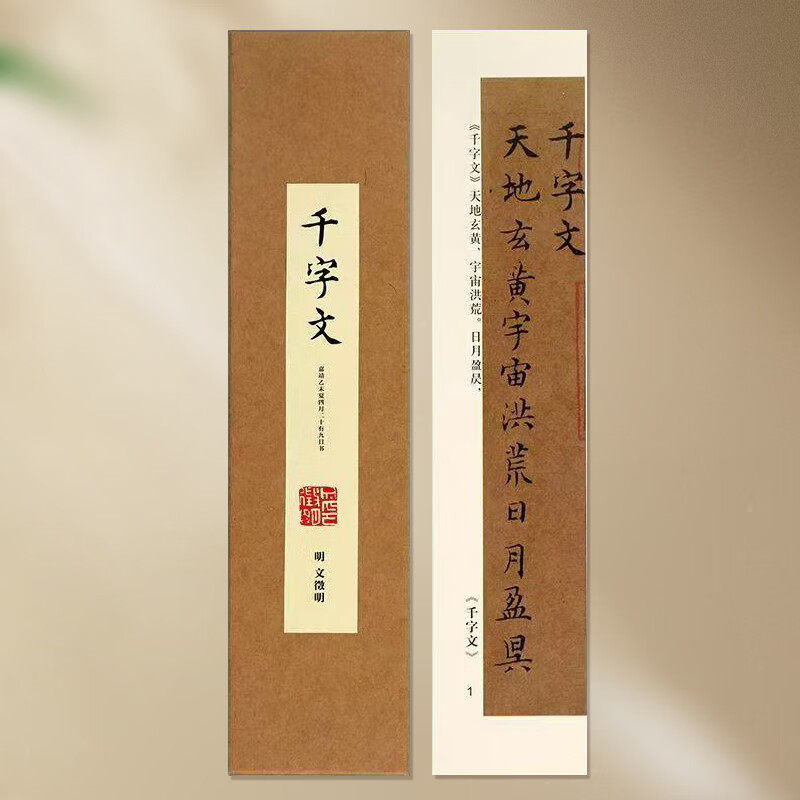 千字文
嘉靖乙未夏四月二十有九日书
明 文徵明
千字文
天地玄黃宇宙洪荒日月盈昃
《千字文》天地玄黄、宇宙洪荒。日月盈昃、
《千字文》
1